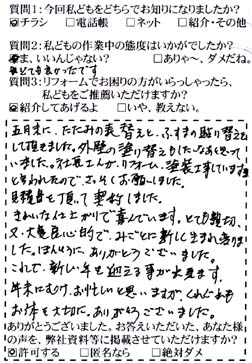 質問1:今回私どもをどちらでお知りになりましたか?
☑チラシ □電話帳 □ネット □紹介・その他
質問2:私どもの作業中の態度はいかがでしたか?
☑ま、いいんじゃない? □ありゃ〜、ダメだね。
とても良かったです
質問3:リフォームでお困りの方がいらっしゃったら、
私どもをご推薦いただけますか?
☑紹介してあげるよ □いや、教えない。
五月末に、たたみの表替えと、ふすまの貼り替えを
して頂きました。外壁の塗り替えもしたいなあと思って
いました。社長さんが、リフォーム、塗装工事しています
と言われたので、さっそくお願いしました。
見積書を頂いて契約しました。
きれいな仕上がりで喜んでいます。とても親切、
又、大変良心的で、みごとに新しく生まれ変り
ました。ほんとうに、ありがとうございました。
これで、新しい年を迎える事が出来ます。
年末にむけ、お忙しいと思いますが、くれぐれも
お体を大切に。ありがとうございました。
ありがとうございました。お答えいただいた、あなた様
の声を、弊社資料等に掲載させていただけますか?
☑許可する □匿名なら □絶対ダメ